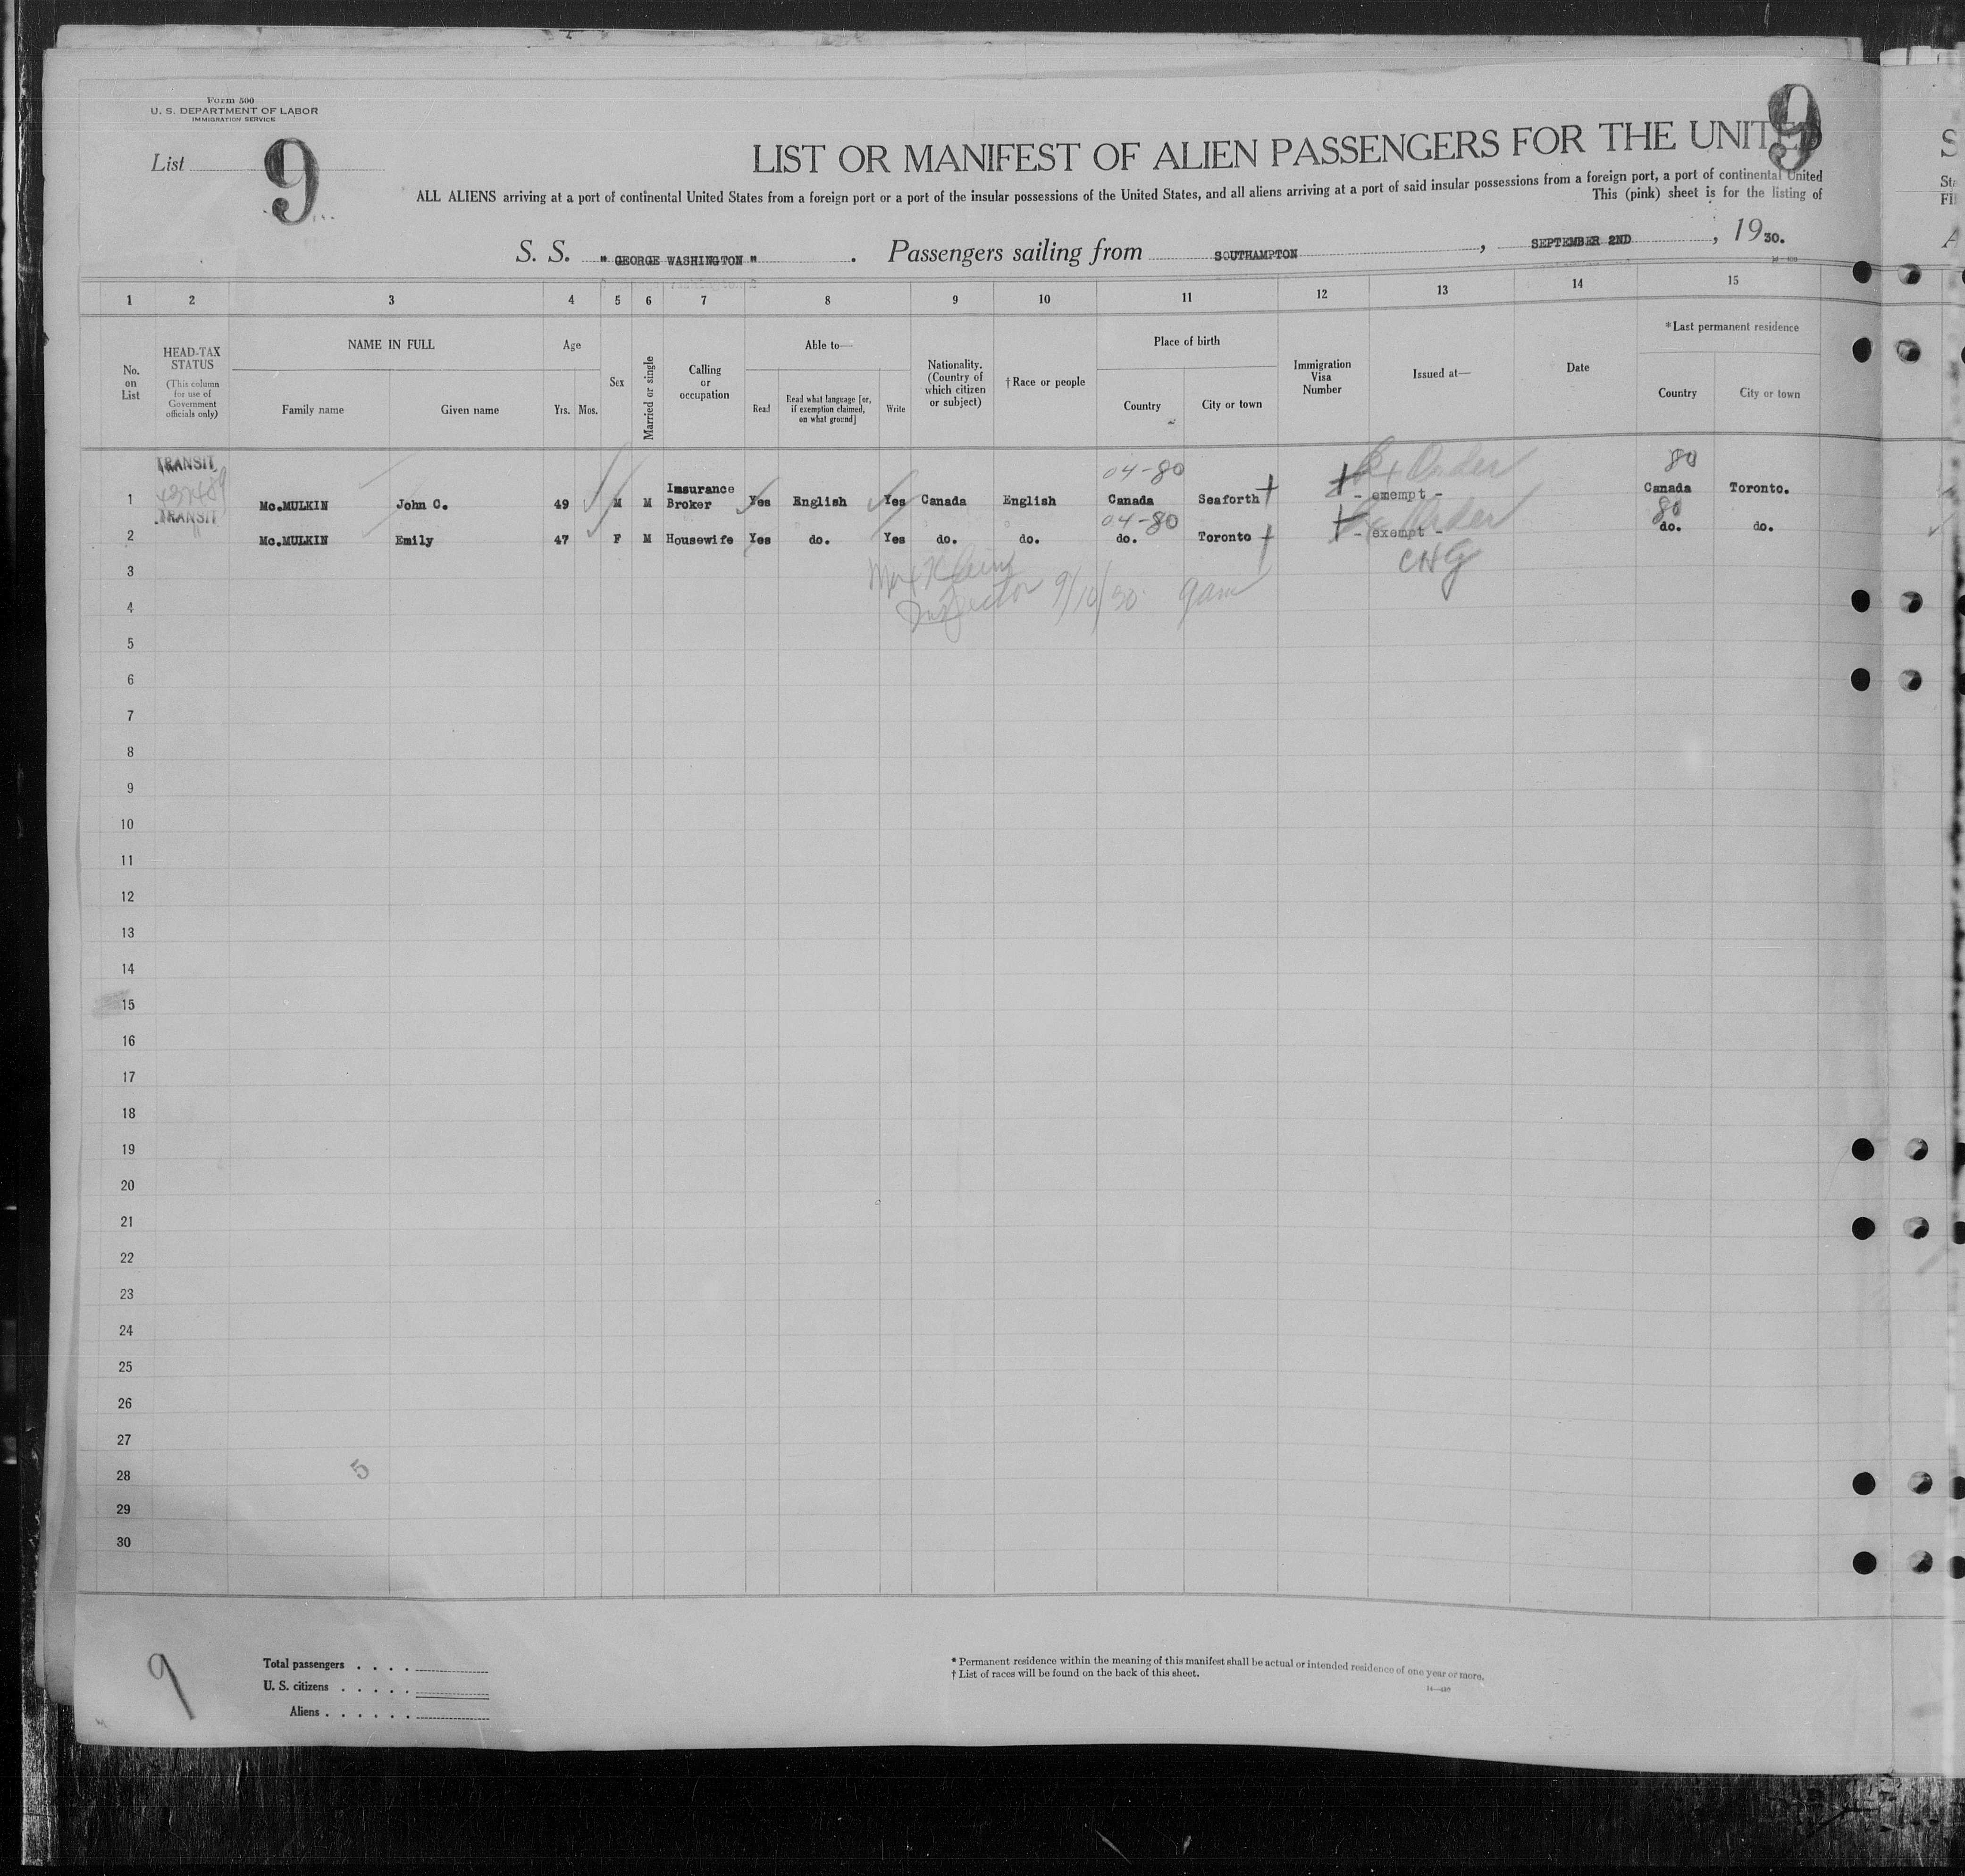 Form 500
U. S. DEPARTMENT OF LABOR
IMMIGRATION SERVICE
List 9
9
LIST OR MANIFEST OF ALIEN PASSENGERS FOR THE UNITED
ALL ALIENS arriving at a port of continental United States from a foreign port or a port of the insular possessions of the United States, and all aliens arriving at a port of said insular possessions from a foreign port, a port of continental United
This (pink) sheet is for the listing of
S. S. " GEORGE WASHINGTON " . Passengers sailing from SOUTHAMPTON , SEPTEMBER 2ND , 19 30.
1 2 3 4 5 6 7 8 9 10 11 12 13 14 15
No. on List
HEAD-TAX STATUS
(This column for use of Government officials only)
NAME IN FULL
Family name Given name
Age
Yrs. Mos.
Sex
Married or single
Calling or occupation
Able to—
Read
Read what language [or, if exemption claimed, on what ground]
Write
Nationality. (Country of which citizen or subject)
†Race or people
Place of birth
Country City or town
Immigration Visa Number
Issued at—
Date
*Last permanent residence
Country City or town
TRANSIT 04-80 Order 80
1 Mc.MULKIN John C. 49 M M Insurance Broker Yes English Yes Canada English Canada Seaforth - exempt - Canada Toronto.
TRANSIT 04-80 Order 80
2 Mc.MULKIN Emily 47 F M Housewife Yes do. Yes do. do. do. Toronto - exempt - do. do.
3 CHG
4 Inspector 9/10/30 9am
5
6
7
8
9
10
11
12
13
14
15
16
17
18
19
20
21
22
23
24
25
26
27
28
5
29
30
9
Total passengers . . . .
U. S. citizens . . . . .
Aliens . . . . . .
* Permanent residence within the meaning of this manifest shall be actual or intended residence of one year or more.
† List of races will be found on the back of this sheet.